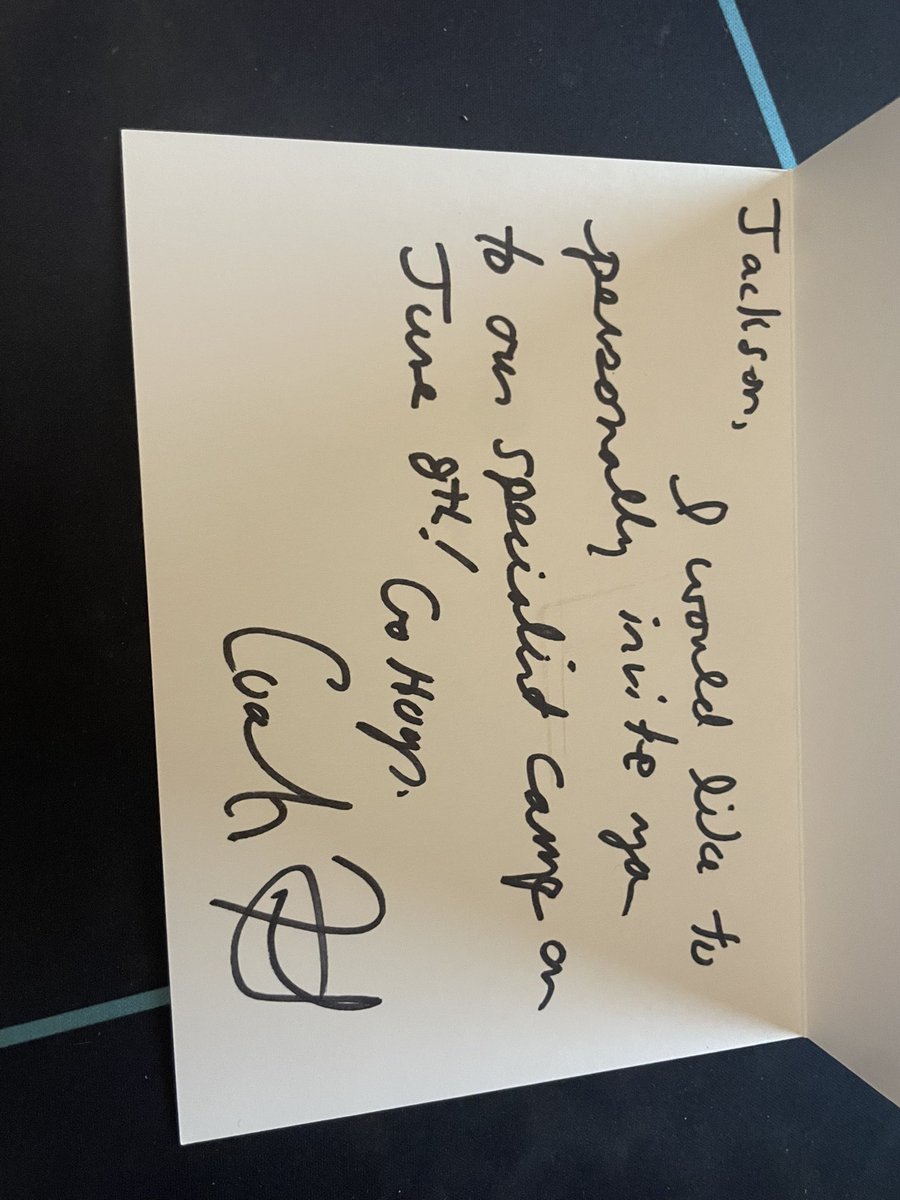 Jackson,
I would like to
personally invite you
to our specialist camp on
June 8th! Go Hogs.
Coach